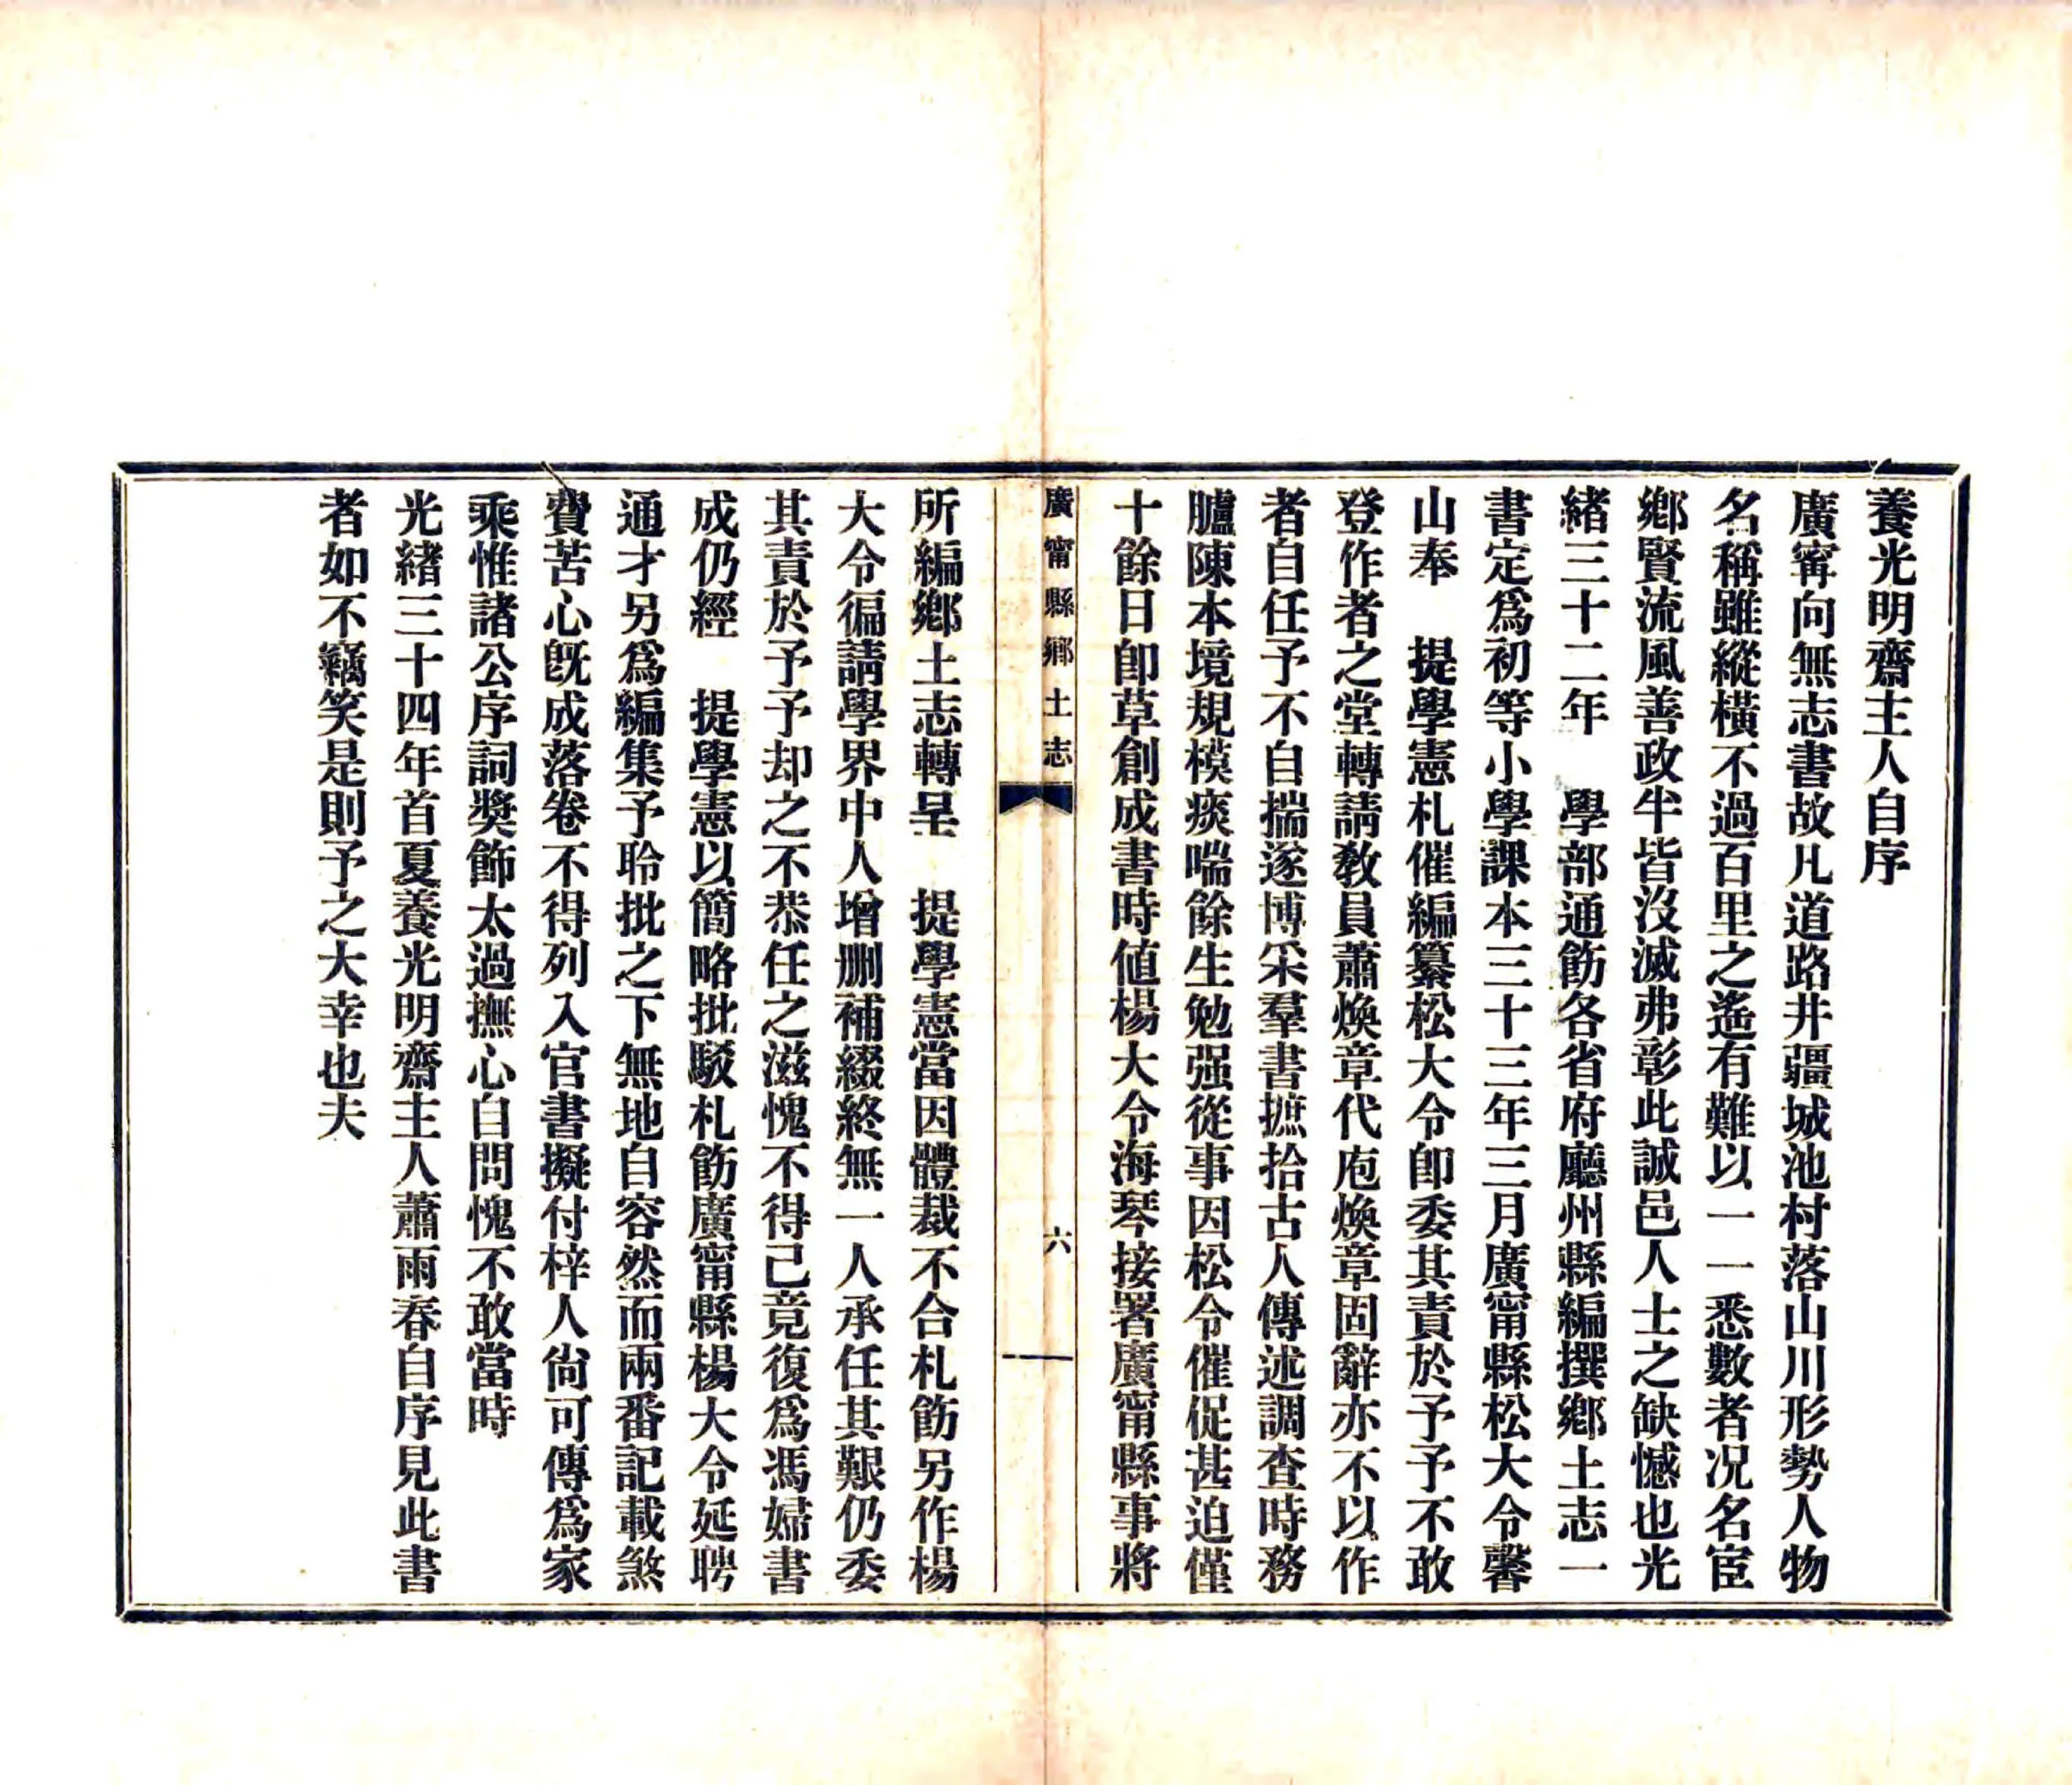 養光明齋主人自序
廣寗向無志書故凡道路井疆城池村落山川形勢人物
名稱雖縱橫不過百里之遙有難以一一悉數者况名宦
鄉賢流風善政半皆沒滅弗彰此誠邑人士之缺憾也光
緒三十二年　學部通飭各省府廳州縣編撰鄉土志一
書定爲初等小學課本三十三年三月廣甯縣松大令馨
山奉　提學憲札催編纂松大令卽委其責於予予不敢
登作者之堂轉請敎員蕭煥章代庖煥章固辭亦不以作
者自任予不自揣遂博采羣書摭拾古人傳述調查時務
臚陳本境規模痰喘餘生勉强從事因松令催促甚迫僅
十餘日卽草創成書時値楊大令海琴接署廣甯縣事將
廣甯縣鄉土志
六
所編鄉土志轉呈　提學憲當因體裁不合札飭另作楊
大令徧請學界中人增删補綴終無一人承任其艱仍委
其責於予予却之不恭任之滋愧不得已竟復爲馮婦書
成仍經　提學憲以簡略批駁札飭廣甯縣楊大令延聘
通才另爲編集予聆批之下無地自容然而兩番記載煞
費苦心旣成落卷不得列入官書擬付梓人尙可傳爲家
乘惟諸公序詞奬飾太過撫心自問愧不敢當時
光緒三十四年首夏養光明齋主人蕭雨春自序見此書
者如不竊笑是則予之大幸也夫